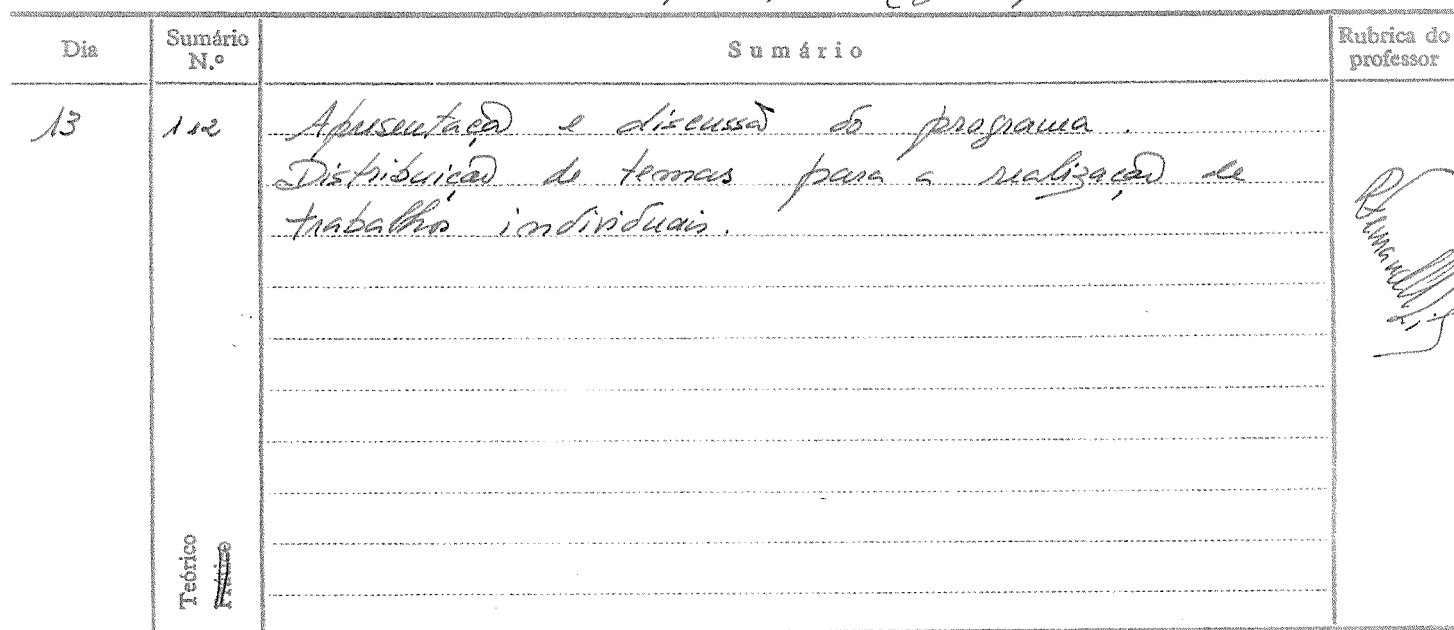 Dia
Sumário N.º
Sumário
Rubrica do professor
13
1 e 2
Apresentação e discussão do programa.
Distribuição de temas para a realização de
trabalhos individuais.
Teórico
Prático